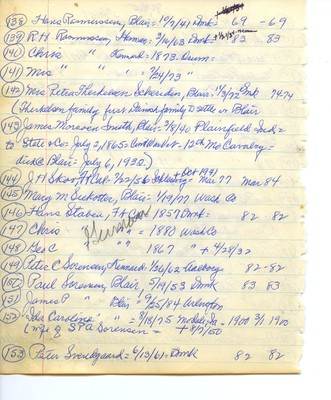 (138) Hans Rasmussen, Blair= 10/7/41 Dmk= 69 -69
(139) R H Rasmussen, Herman= 3/16/63 Dmk= 82 83
(140) Chris " " Kennard= 1873 Drum=
(141) Mrs " " " = 2/24/73 "
(142) Mrs Petra Therkelsen Schernikau, Blair= 1/3/72 Dmk 74-74
(Therkelsen family first Danish family to settle in Blair
(143) James Monroen Smith, Blair= 3/8/40 Plainfield Ind=
to State & Co= July 2, 1865= 12th Mo Cavalry=
died Blair= July 6, 1932.)
(144) J H Skov, Ft Cal= 2/22/56 Schleswig= Oct 1931 Mar 77 Mar 84
(145) Mary M Siekotter, Blair= 1/19/77 Wash Co
(146) Hans Stabia, Ft C= 1857 Dmk= 82 82
(147) Chris " " " = 1880 Wash Co
(148) Geo C " " " 1867 " + 4/28/32
(149) Peter C Sorensen, Kennard= 1/26/62 82-82
(150) Paul Sorensen, Blair, 5/19/53 Dmk 83 83
(151) James P " Blair 9/25/84 Arlington
(152) Ida Caroline " " = 8/18/75 Ia - 1900 3/1 1900
(wife of S P A Sorensen = + 8/7/50
(153) Peter Svendgaard= 6/13/61= Dmk 82 82